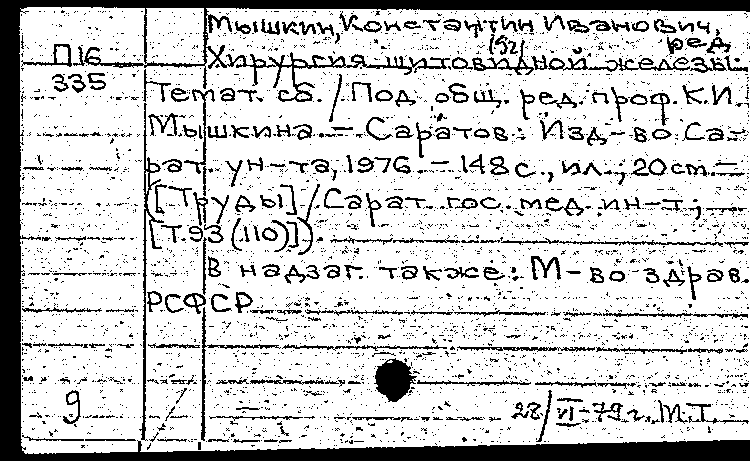 Мышкин, Константин Иванович,
ред.
П16
335
Хирургия щитовидной железы:
Темат. сб. / Под общ. ред. проф. К.И.
Мышкина. — Саратов: Изд-во Са-
рат. ун-та, 1976. — 148 с., ил.; 20 см. —
([Труды] / Сарат. гос. мед. ин-т;
[Т. 93 (110)]).
В надзаг. также: М-во здрав.
РСФСР
9
28/VI-79 г. М.Т.